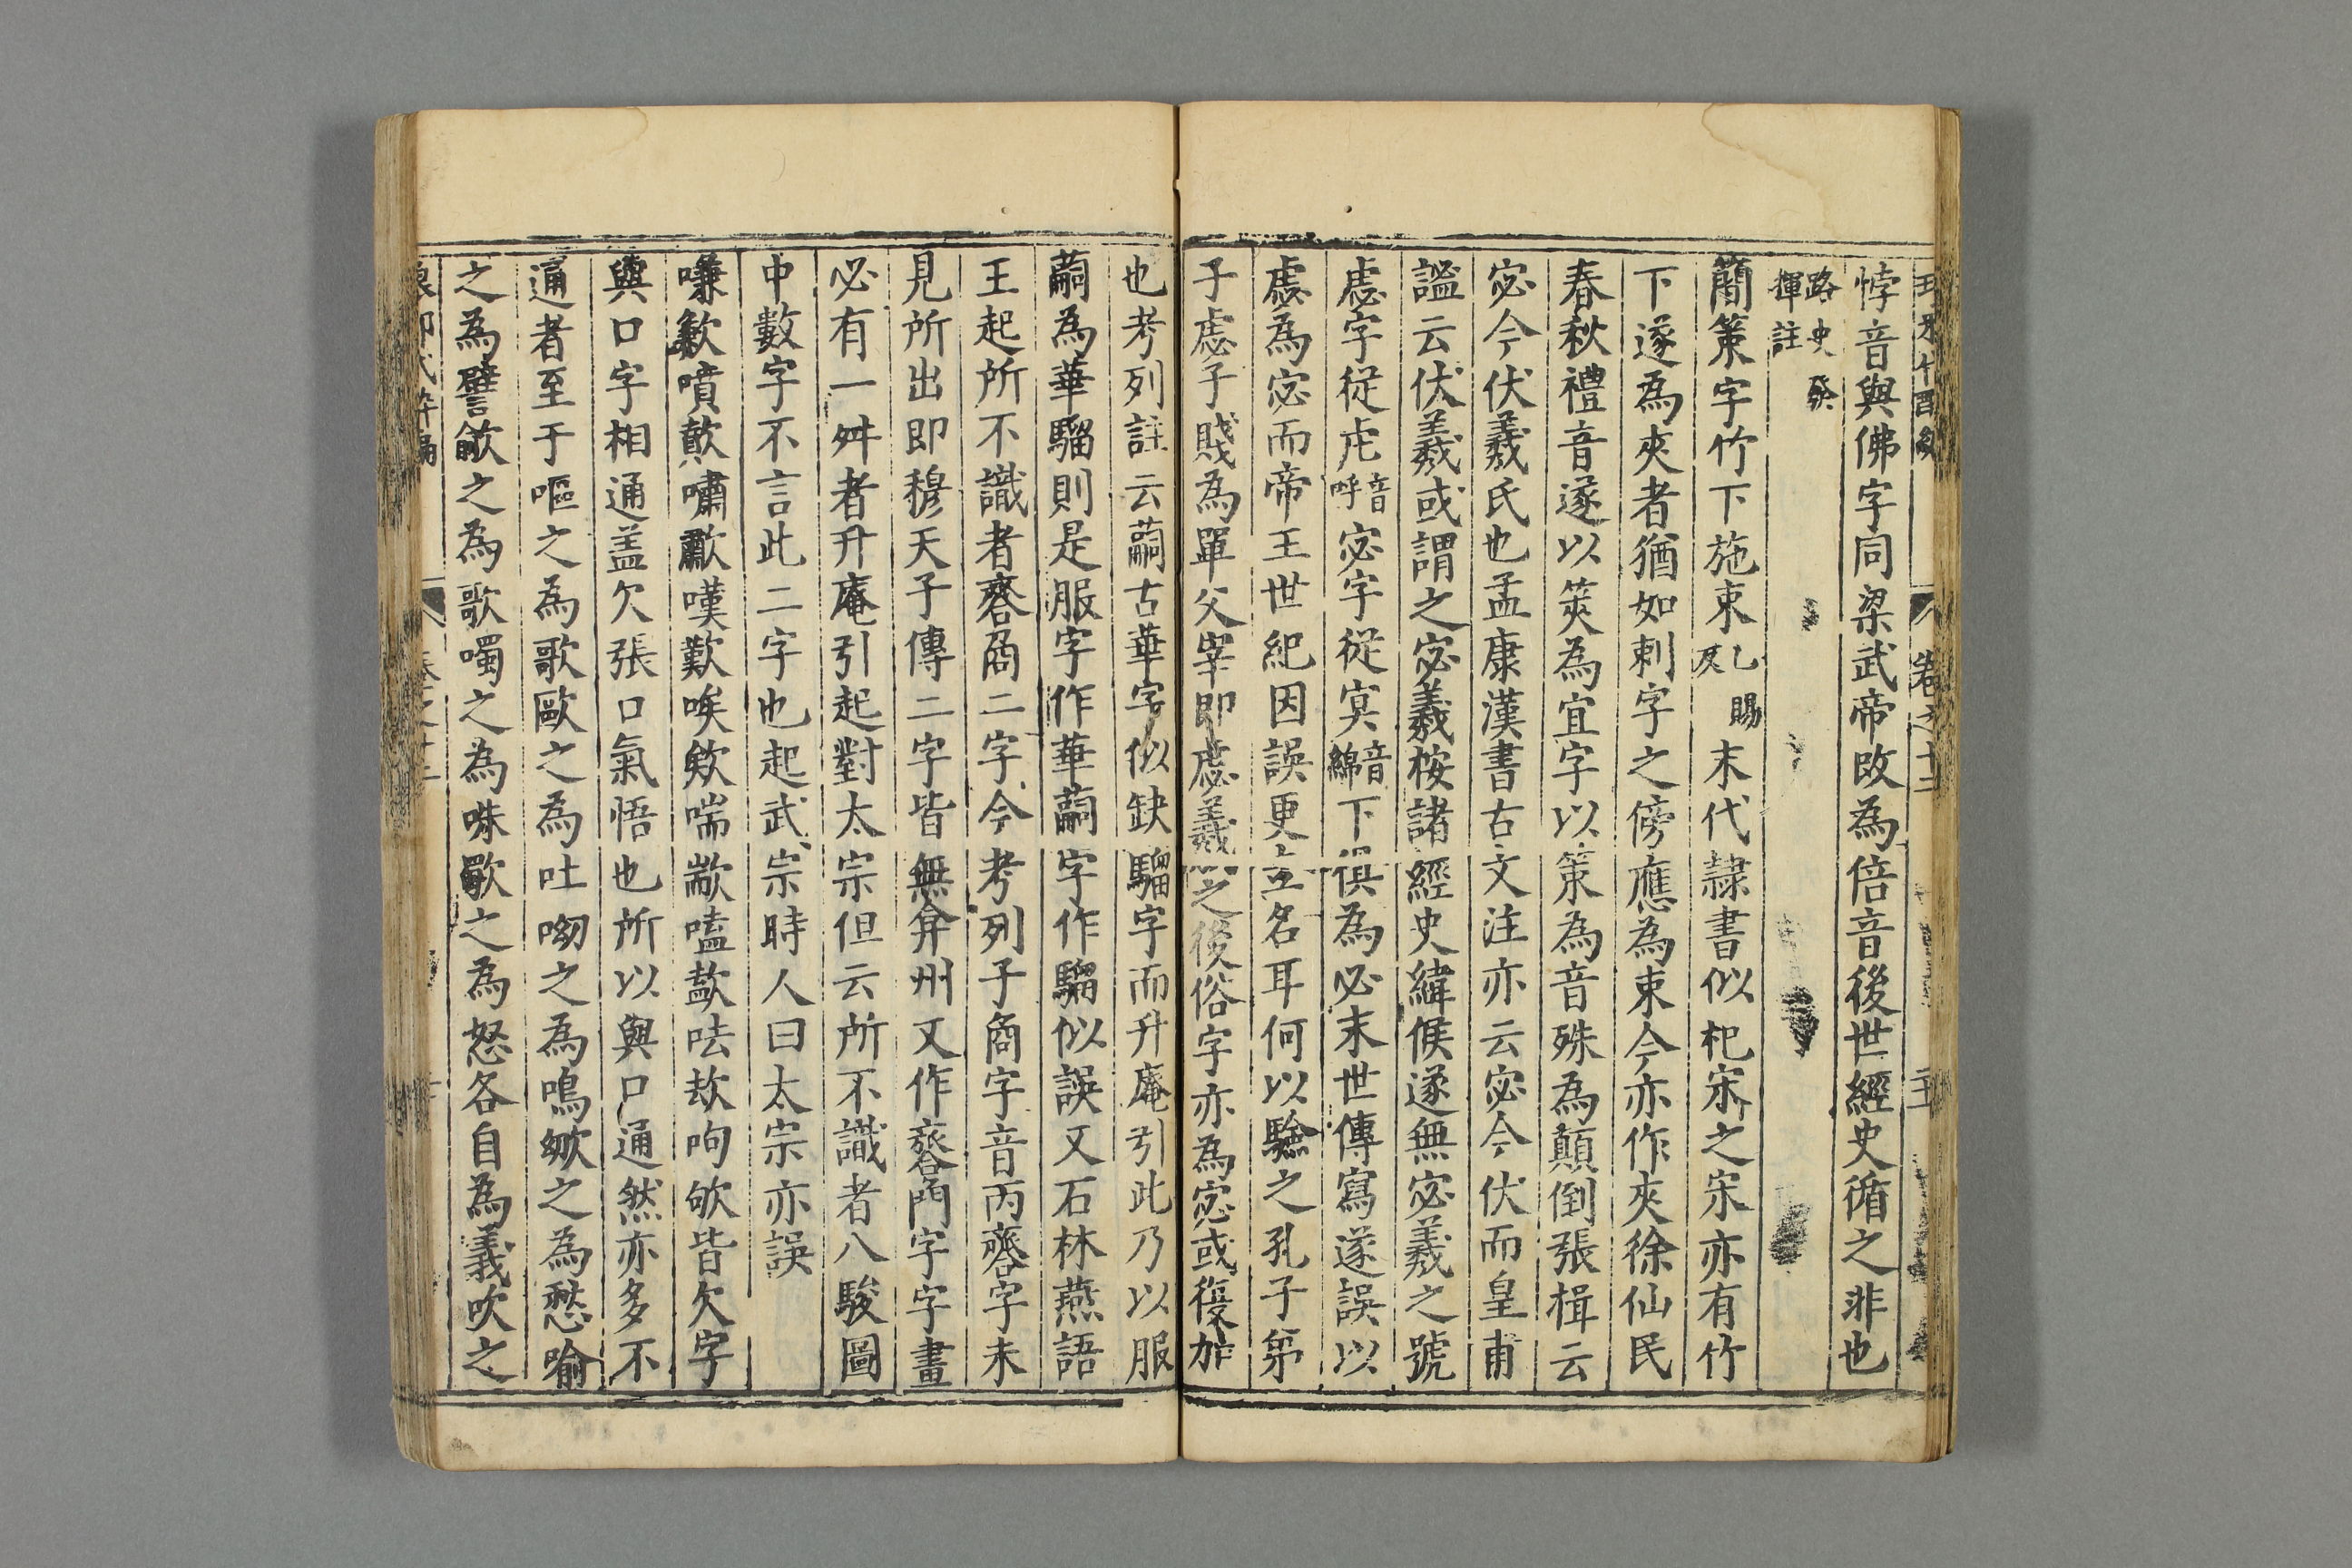 悖音與佛字同梁武帝改為倍音後世經史循之非也
路史發揮註
簡策字竹下施朿乙賜反末代隸書似杞宋之宋亦有竹
下遂為夾者猶如刺字之傍應為朿今亦作夾徐仙民
春秋禮音遂以筴為宜字以策為音殊為顛倒張揖云
宓今伏羲氏也孟康漢書古文注亦云宓今伏而皇甫
謐云伏羲或謂之宓羲桉諸經史緯候遂無宓羲之號
虙字從虍音呼宓字從㝠音綿下俱為必末世傳寫遂誤以
虙為宓而帝王世紀因誤更立名耳何以驗之孔子苐
子虙子賤為單父宰即虙羲之後俗字亦為宓或復加
也考列註云𦽊古華字似缺騮字而升庵引此乃以服
𦽊為華騮則是服字作華𦽊字作騮似誤又石林燕語
王起所不識者䶒㕯二字今考列子㕯字音丙䶒字未
見所出即穆天子傳二字皆無弇州又作䶒㕯字字畫
必有一舛者升庵引起對太宗但云所不識者八駿圖
中數字不言此二字也起武宗時人曰太宗亦誤
嗛歉噴歕嘯歗嘆歎唉欸喘歂嗑㰤呿㰦呴欨皆欠字
與口字相通盖欠張口氣悟也所以與口通然亦多不
通者至于嘔之為歌歐之為吐呦之為鳴㰶之為愁喻
之為譬歈之為歌噣之為咮歜之為怒各自為義吹之